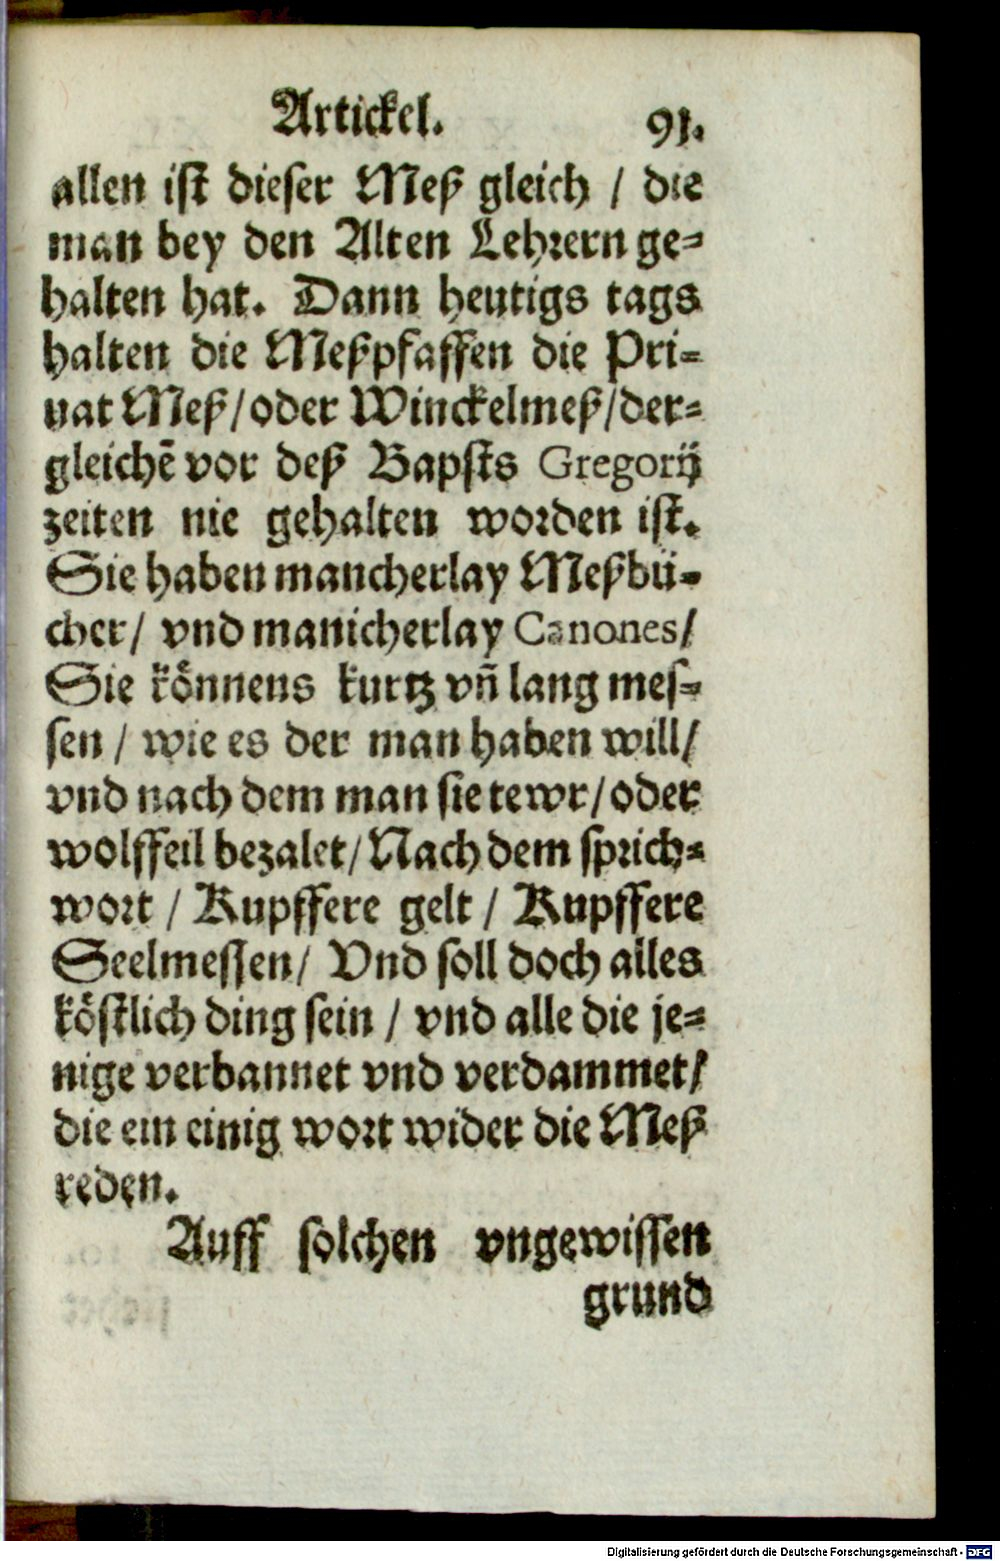 Artickel. 91.
allen ist dieser Meß gleich / die
man bey den Alten Lehrern ge-
halten hat. Dann heutigs tags
halten die Meßpfaffen die Pri-
uat Meß/oder Winckelmeß/der-
gleichẽ vor deß Bapsts Gregorij
zeiten nie gehalten worden ist.
Sie haben mancherlay Meßbü-
cher/ vnd manicherlay Canones/
Sie koͤnnens kurtz vñ lang mes-
sen / wie es der man haben will/
vnd nach dem man sie tewr/oder
wolffeil bezalet/Nach dem sprich-
wort / Kupffere gelt / Kupffere
Seelmessen/ Vnd soll doch alles
koͤstlich ding sein / vnd alle die je-
nige verbannet vnd verdammet/
die ein einig wort wider die Meß
reden.
Auff solchen vngewissen
grund
Digitalisierung gefördert durch die Deutsche Forschungsgemeinschaft - DFG